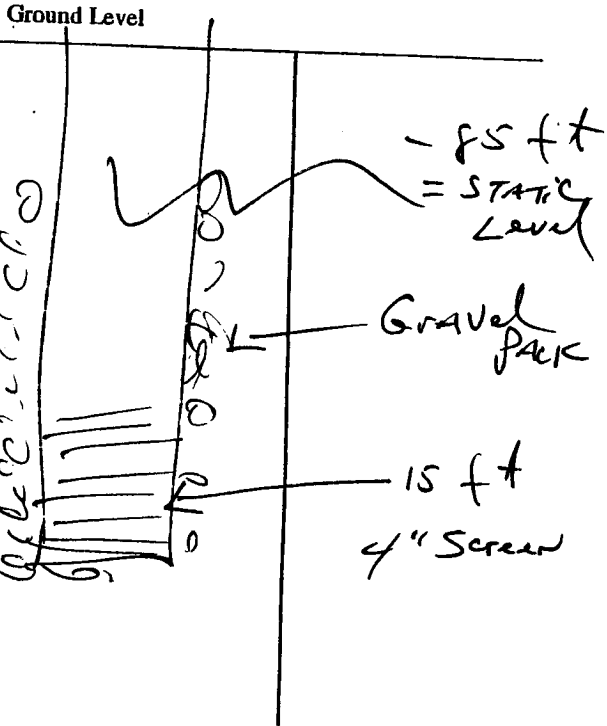 Ground Level
- 85 ft
= STATIC
Level
GRAVel
PACK
15 ft
4" Screen